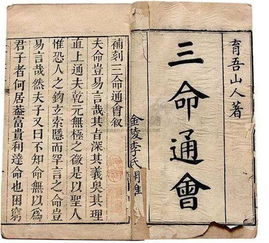 育吾山人著
三命通會
金陵李氏
補刻三命通會叙
夫命豈易言哉其旨深其義奥其理
直上通夫乾元無極之微是以聖人
惟恐人之鈎玄索隱而罕言之命豈
易言哉然夫子又曰不知命無以爲
君子者何居蓋富貴利達命也困窮